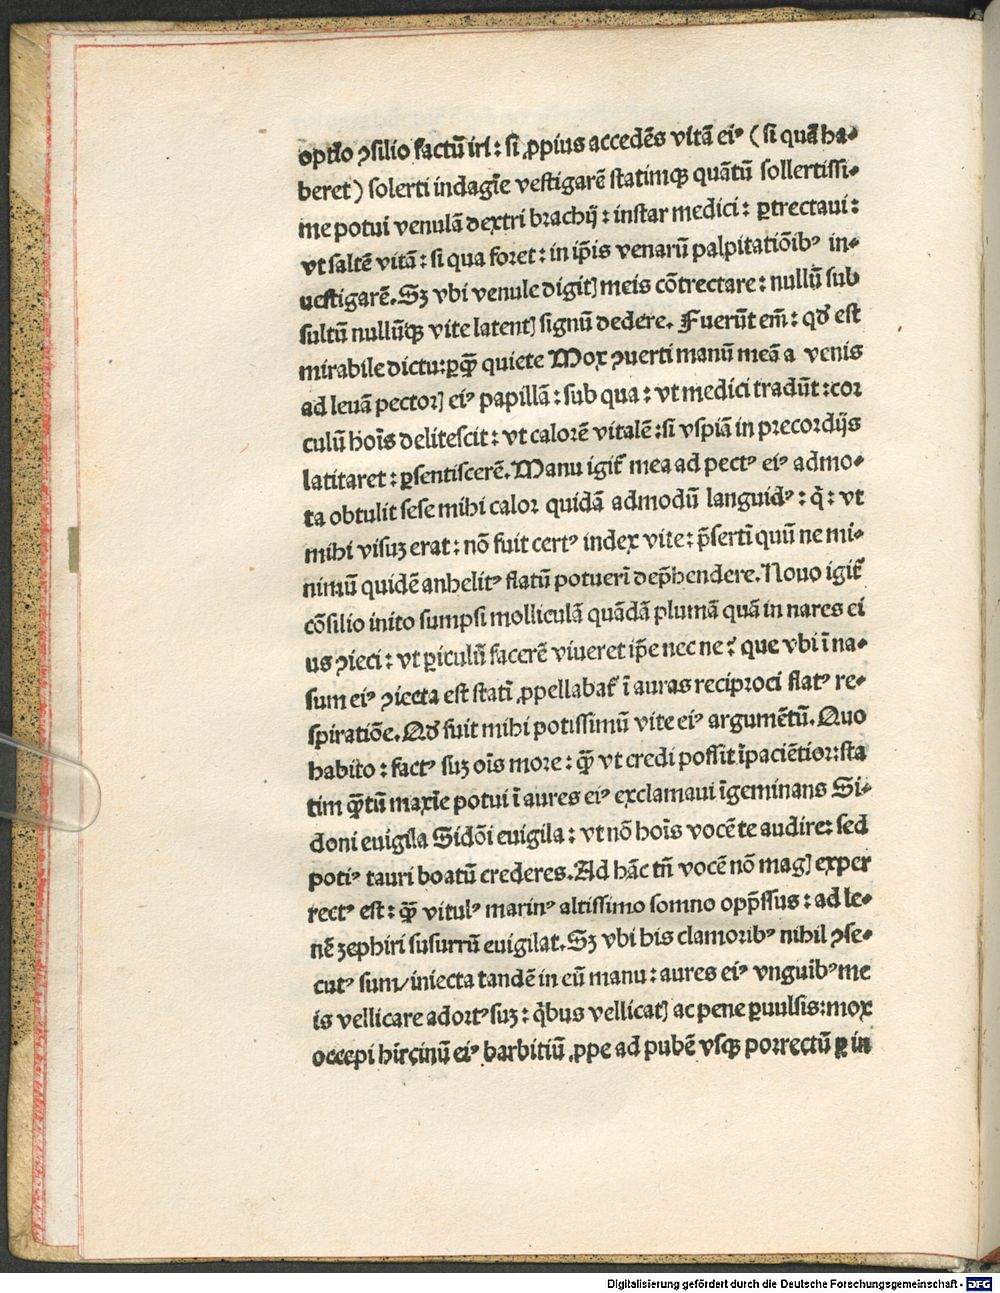 optīo ꝯsilio factū iri : si ꝓpius accedēs vitā eiꝰ ( si quā ha⸗
beret ) solerti indagīe vestigarē statimqꝫ quātū sollertissi⸗
me potui venulā dextri brachij : instar medici : ꝑtrectaui :
vt saltē vitā : si qua foret : in ip̄is venarū palpitatiōibꝰ in⸗
uestigarē. Sꝫ vbi venule digitꝭ meis cōtrectare : nullū sub
sultū nullūqꝫ vite latentꝭ signū dedere. Fuerūt em̄ : qd̓ est
mirabile dictu: ꝑqꝫ̄ quiete Mox ꝯuerti manū meā a venis
ad leuā pectorꝭ eiꝰ papillā : sub qua : vt medici tradūt : cor
culū hoīs delitescit : vt calorē vitalē : si vspiā in precordijs
latitaret : ꝑsentiscerē. Manu igit᷑ mea ad pectꝰ eiꝰ admo⸗
ta obtulit sese mihi calor quidā admodū languidꝰ : q̇ : vt
mihi visuꝫ erat : nō fuit certꝰ index vite : p̄serti quū ne mi⸗
nimū quidē anhelitꝰ flatū potuerī dep̄hendere. Nouo igit᷑
cōsilio inito sumpsi molliculā quādā plumā quā in nares ei
us ꝯieci : vt ꝑiculū facerē viueret ip̄e nec ne ? que vbi ī na⸗
sum eiꝰ ꝯiecta est statī ꝓpellabat᷑ ī auras reciproci flatꝰ re⸗
spiratiōe. Qd̓ fuit mihi potissimū vite eiꝰ argumētū. Quo
habito : factꝰ suꝫ oīs more : qꝫ̄ vt credi possit īpaciētior: sta
tim qꝫ̄tū maxīe potui ī aures eiꝰ exclamaui īgeminans Si⸗
doni euigila Sidōi euigila : vt nō hoīs vocē te audire: sed
potiꝰ tauri boatū crederes. Ad hāc tn̄ vocē nō magꝭ exper
rectꝰ est : qꝫ̄ vitulꝰ marinꝰ altissimo somno opp̄ssus : ad le⸗
nē zephiri susurrū euigilat. Sꝫ vbi his clamoribꝰ nihil ꝯse⸗
cutꝰ sum / iniecta tandē in eū manu : aures eiꝰ vnguibꝰ me
is vellicare adortꝰ suꝫ : q̇bus vellicatꝭ ac pene ꝑuulsis: mox
occepi hircinū eiꝰ barbitiū ꝓpe ad pubē vsqꝫ porrectū ꝑ in
Digitalisierung gefördert durch die Deutsche Forschungsgemeinschaft - DFG